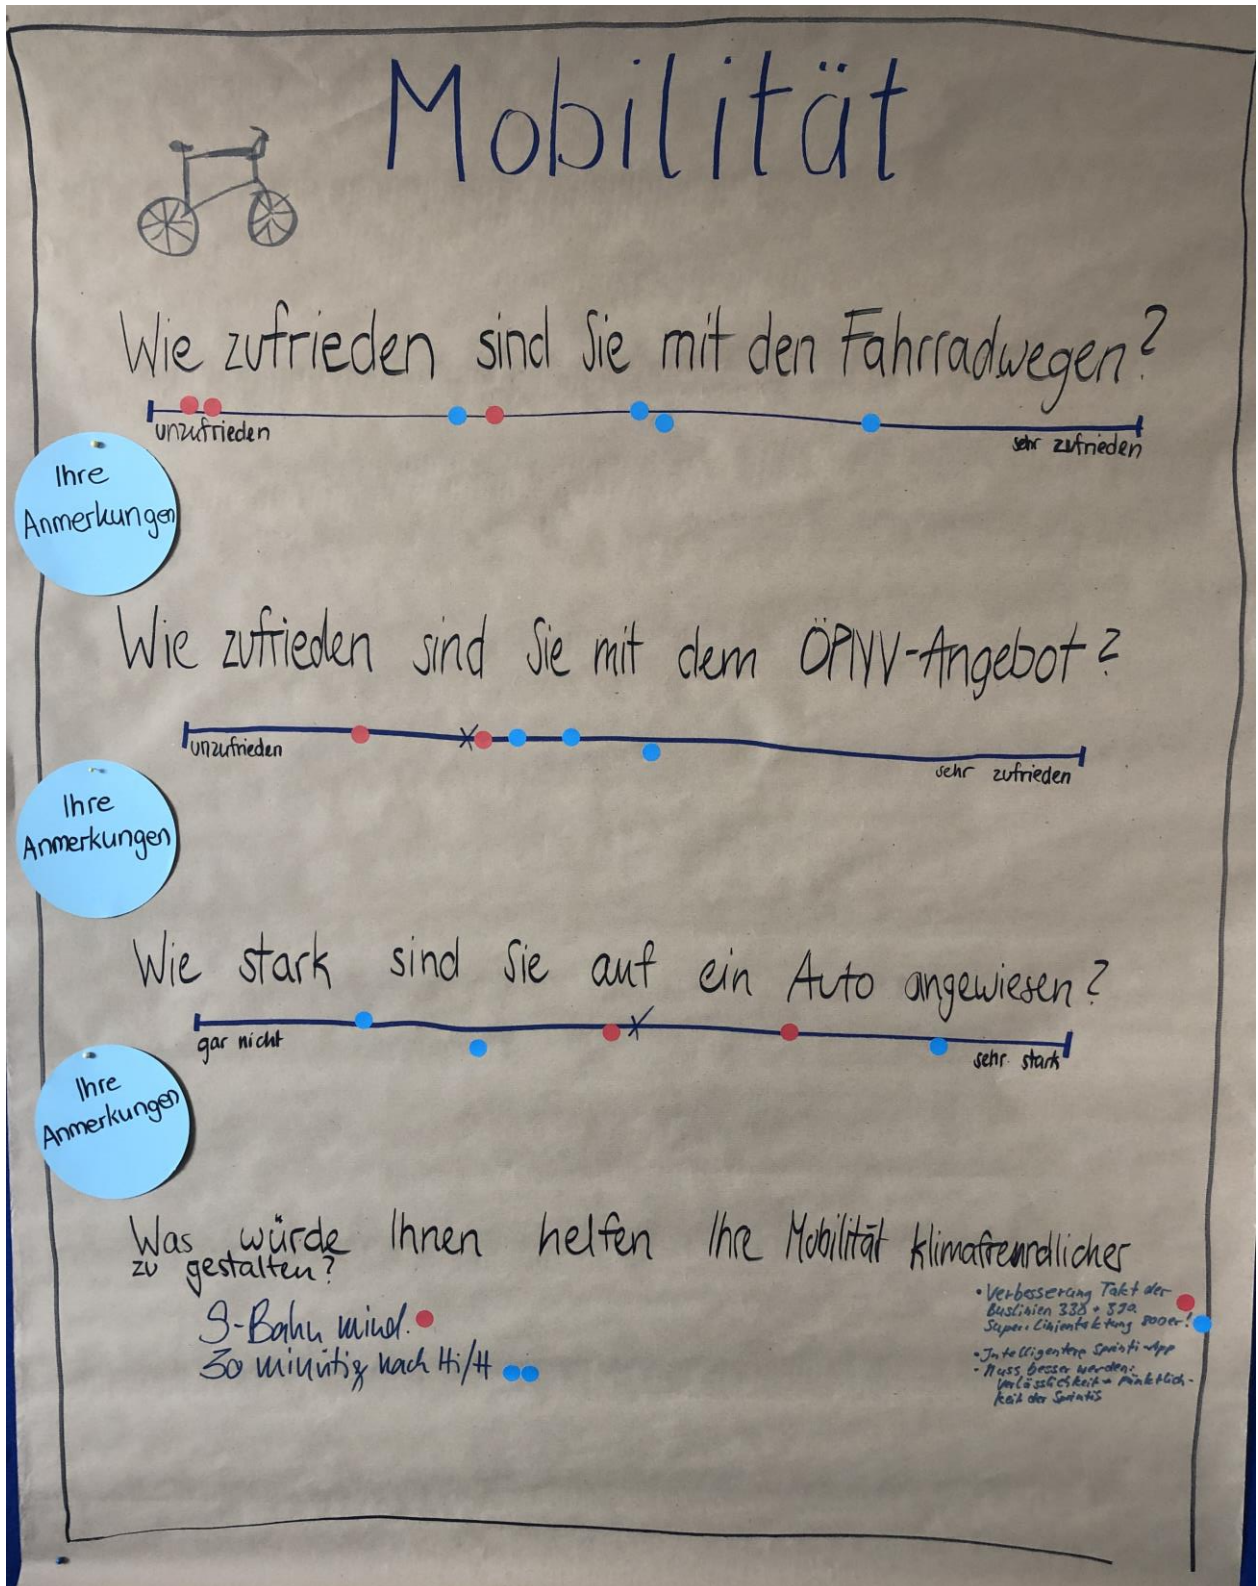 Mobilität
Wie zufrieden sind Sie mit den Fahrradwegen?
unzufrieden
sehr zufrieden
Ihre
Anmerkungen
Wie zufrieden sind Sie mit dem ÖPNV-Angebot?
unzufrieden
sehr zufrieden
Ihre
Anmerkungen
Wie stark sind Sie auf ein Auto angewiesen?
gar nicht
sehr stark
Ihre
Anmerkungen
Was würde Ihnen helfen Ihre Mobilität klimafreundlicher
zu gestalten?
S-Bahn mind.
30 minütig nach Hi/H
• Verbesserung Takt der
Buslinien 330 +
Super: Linientaktung 800er!
• Intelligentere Sprinti-App
- Muss besser werden:
Verlässlichkeit + Pünktlich-
keit der Sprintis